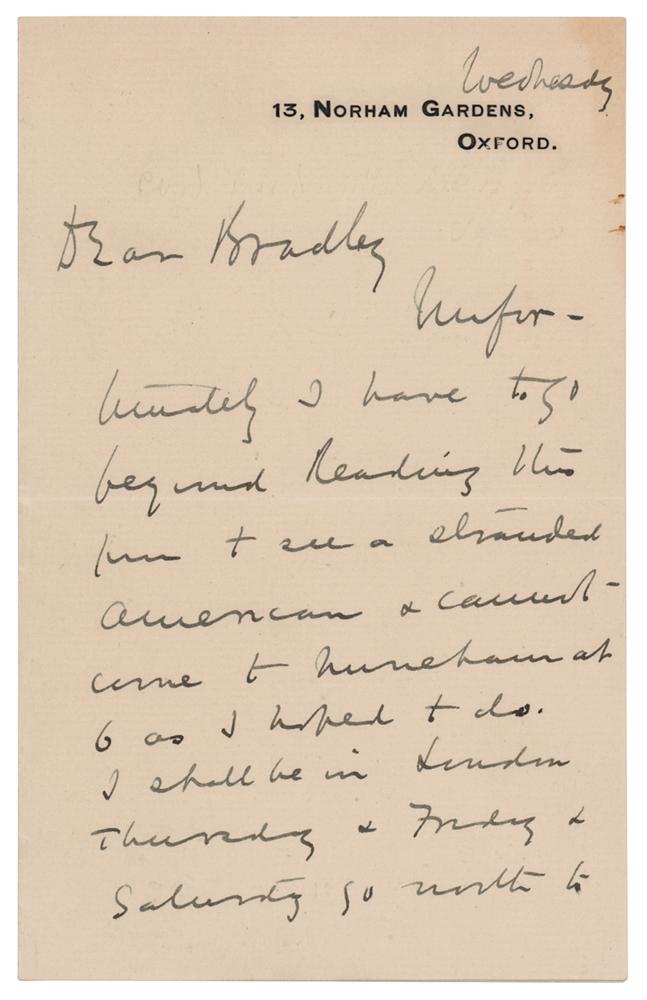 Wednesday
13, NORHAM GARDENS,
OXFORD.
Dear Bradley
Unfor-
tunately I have to go
beyond Reading this
pm to see a stranded
American & cannot
come to Nuneham at
6 as I hoped to do.
I shall be in London
Thursday & Friday &
Saturday go north to